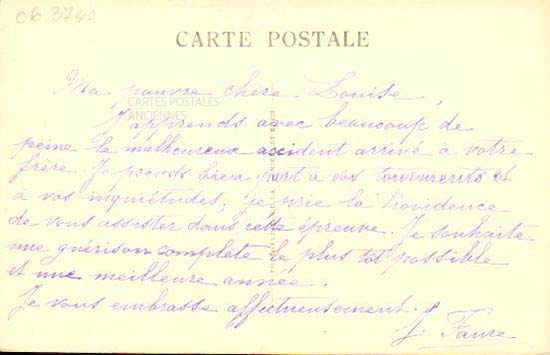 06 3740
CARTE POSTALE
Ma pauvre chère Louise,
CARTES POSTALES
ANCIENNES
J'apprends avec beaucoup de
peine le malheureux accident arrivé à votre
frère. Je prends bien part à vos tourments et
à vos inquiétudes; je prie la Providence
de vous assister dans cette épreuve. Je souhaite
une guérison complète le plus tôt possible
et une meilleure année.
Je vous embrasse affectueusement.
J. Faure